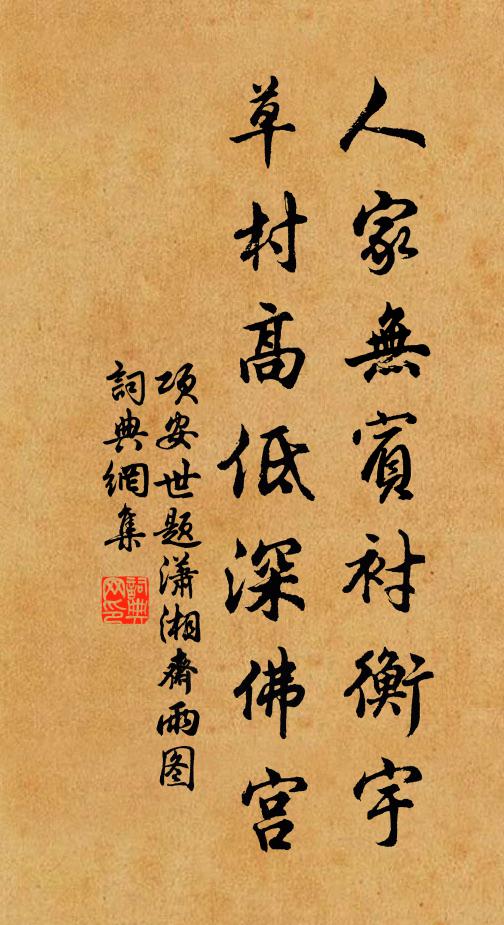 人家無賓衬衡宇
草村高低深佛宫
项安世题瀟湘齋雨图
詞典網集
詞典網印